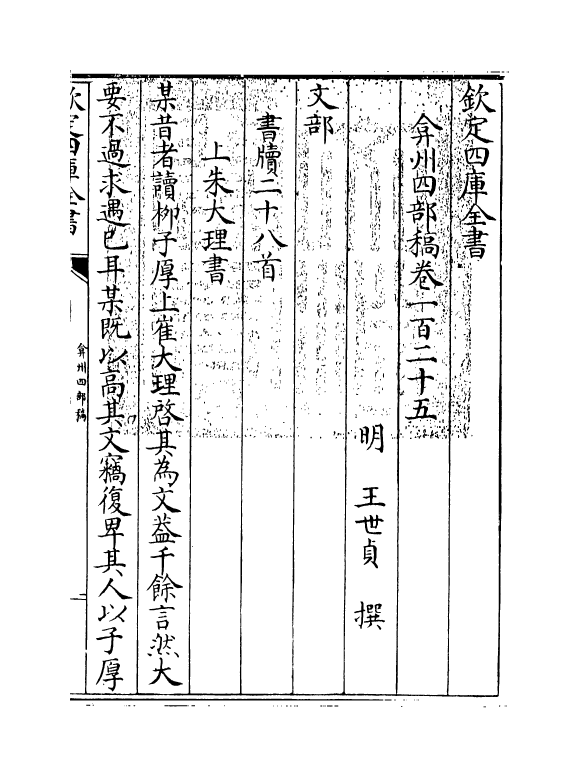 欽定四庫全書
弇州四部稿卷一百二十五
明 王世貞 撰
文部
書牘二十八首
上朱大理書
某昔者讀柳子厚上崔大理啓其為文葢千餘言然大
要不過求遇已耳某既以高其文竊復卑其人以子厚
欽定四庫全書
弇州四部稿
一